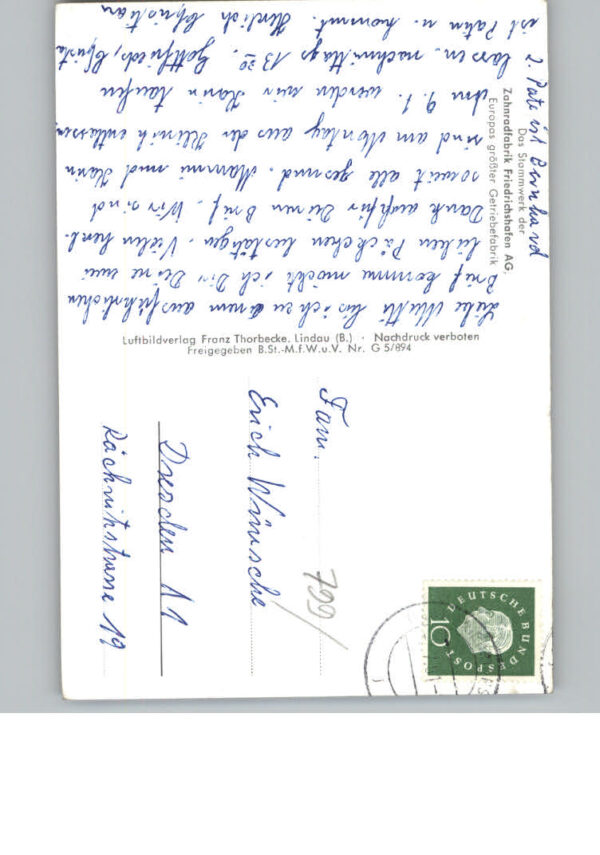 Das Stammwerk der
Zahnradfabrik Friedrichshafen AG.
Europas größter Getriebefabrik
Liebe Mutti bis ich zu einem ausführlichen
Brief komme möcht ich Dir Deine zwei
lieben Päckchen bestätigen. Vielen herzl.
Dank auch für Deinen Brief. Wir sind
soweit alle gesund. Mammi und Karin
sind am Montag aus der Klinik entlassen
Am 9. 1. werden wir Karin taufen
lassen. nachmittags 13 30.
ist Patin u. kommt. Herzlich Christian
2. Pate ist Bernhard
Luftbildverlag Franz Thorbecke, Lindau (B.) · Nachdruck verboten
Freigegeben B.St.-M.f.W.u.V. Nr. G 5/894
Fam.
Erich Wünsche
Dresden A1
Räcknitzstrasse 19
799/
DEUTSCHE BUNDESPOST
10